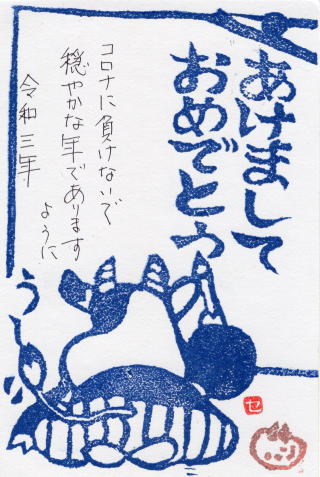 あけまして
おめでとう
コロナに負けないで
穏やかな年であります
ように
令和三年
うし
セ